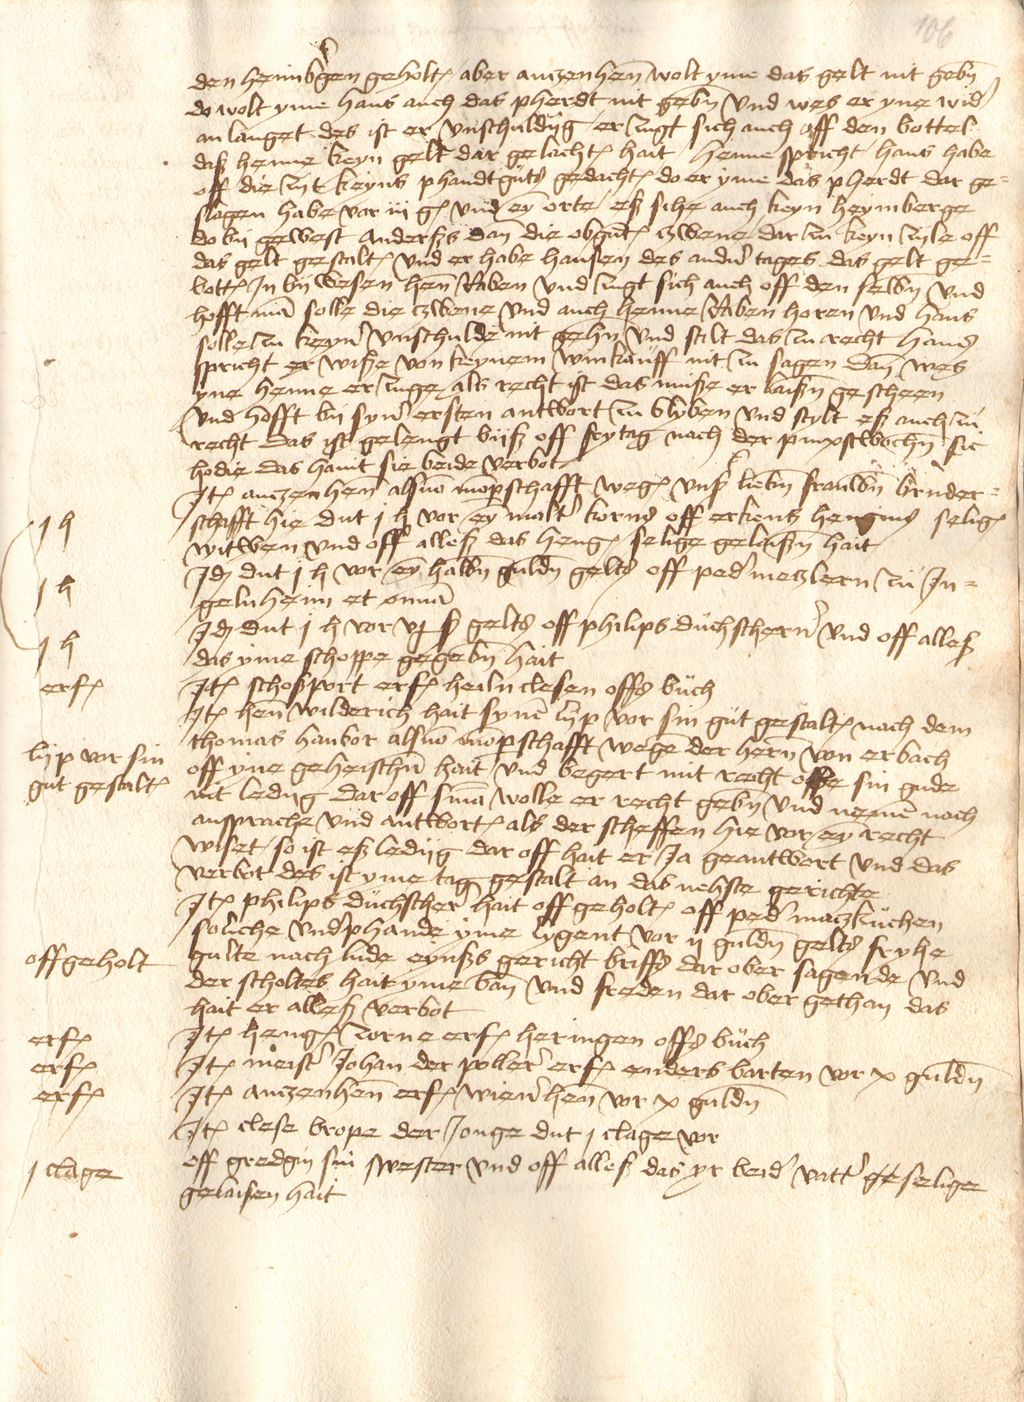 106
den heimbergen geholt(en) aber anczenhen(n) wolt yme das gelt nit geb(e)n
do wolt yme hans auch das pherdt nit geb(e)n und wes er yne wid(er)
anlanget des ist er unschuldig er zugt sich auch off den bottel
daß henne keyn gelt dar gelacht(en) hait / henne spricht hans habe
off die zyt keyns phandt guts gedacht(en) do er yme das pherdt dar ge=
slagen habe vor iii g(ulden) und ey(n) orte / eß sihe auch keyn heymberge
do by gewest anderß dan die obg(e)n(an)t(en) zwene dar zu keyn zyle off
das gelt gestalt(en) und er habe hansen des ander(n) tages das gelt ge=
bott(en) in bywesen hen(n) Raben und zugt sich auch off den selb(e)n und
hofft ma(n) solle die zwene und auch henne Raben horen und hans
solle zu keyn(er) unschulde nit gehn und stilt das zu recht hans
spricht er wiße von keynem winkauff nit zu sagen dan wes
yne henne erzuge als recht ist das muße er laiß(e)n gescheen
und hofft by syn(er) ersten antwort zu blyben und stylt eß auch zu
recht das ist gelengt biß off frytag nach der pinxstwoch(e)n sic
hodie das haint sie beide verbot
It(em) anczenhen(n) als(o) mo(m)perschafft weg(en) uns(er) lieb(e)n frauw(e)n bruder=
schafft hie dut j h vor ey(n) malt(er) korns off erkens heng(i)ns selig(en)
witwen und off alleß das heng(in) selige gelaiß(e)n hait
j h
Id(em) dut j h vor ey(n) halb(e)n guld(e)n gelts off ped(er) meczlern zu In=
gelnheim et om(n)ia
j h
Id(em) dut j h vor vj ß gelts off philips duchscher(e)r und off alleß
das yme schoppe gegeb(e)n hait
j h
It(em) schoßport erk(en) heiln clesen offs buch
erk(en)
It(em) hen(n) wilderich hait syne(n) lyp vor sin gut gestalt(en) nach dem
thomas hanbor als(o) mo(m)perschafft wege(n) der hern von erbach
lyp vor sin
off yne geheisch(e)n hait und begert mit recht obe sin gude
gut gestalt(en)
nit ledig dar off sin(d) wolle er recht geb(e)n und neme(n) nach
ansprache und antwort(en) als der scheffen hie vor ey(n) recht
wiset / so ist eß ledig dar off hait er Ja geantwort und das
verbot des ist yme tag gestalt an das nehste gerichte
It(em) philips duchscher(e)r hait offgeholt(en) off ped(er) maczkuchen
soliche und(er)phande yme lygent vor ij guld(e)n gelts fryhe
offgeholt
gulte nach lude eynß gericht briffs dar ober sagende und
der scholteß hait yme ban und freden dar ober gethan das
hait er alleß verbot
It(em) heng(in) zorne erk(en) heringen offs buch
erk(en)
It(em) meist(er) Johan der poller(er) erk(en) enders barten vor x guld(e)n
erk(en)
It(em) anczenhen(n) erk(en) wien(er)hen(n) vor x guld(e)n
erk(en)
It(em) clese brope der Jonge dut j clage vor
off gredgin sin swester und off alleß das yr beid(er) vatt(er) selige
j clage
gelaisen hait